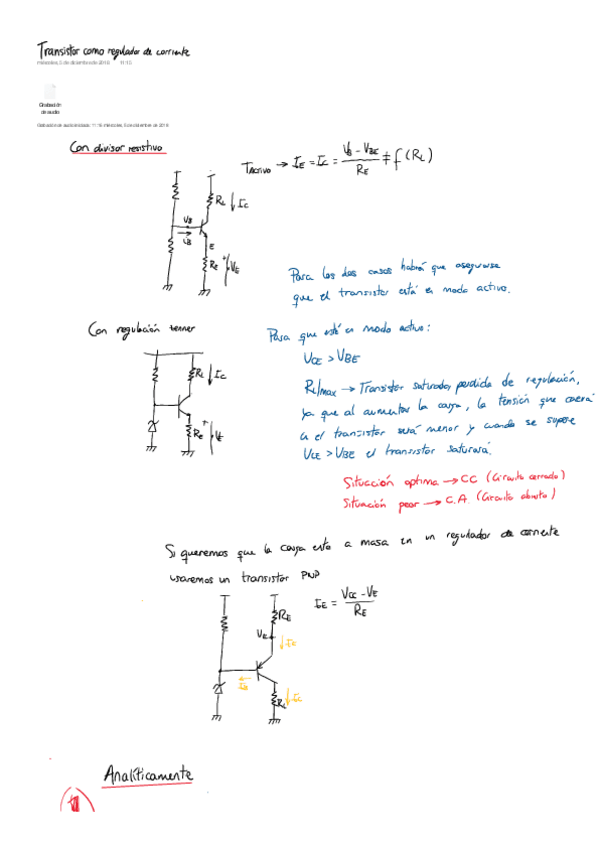 Transistor como regulador de corriente
miércoles, 5 de diciembre de 2018 11:15
Grabación
de audio
Grabación de audio iniciada: 11:16 miércoles, 5 de diciembre de 2018
Con divisor resistivo
TActivo → IE = IC = (VB - VBE)/RE ≠ f(RL)
RL ↓ IC
VB
iB
E
RE VE
Para los dos casos habrá que asegurarse
que el transistor está en modo activo.
Con regulación zenner
Para que esté en modo activo:
VCE > VBE
RL ↓ IC
RL|max → Transistor saturado, perdida de regulación,
ya que al aumentar la carga, la tensión que caerá
en el transistor será menor y cuando se supere
VCE > VBE el transistor saturará.
RE VE
Situación optima → CC (Circuito cerrado)
Situación peor → C.A. (Circuito abierto)
Si queremos que la carga esté a masa en un regulador de corriente
usaremos un transistor PNP
IE = (VCC - VE)/RE
RE
VE
↓ IE
IB
RL ↓ IC
Analíticamente